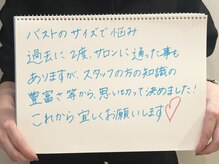 バストのサイズで悩み
過去に2度、サロンに通った事も
ありますが、スタッフの方の知識の
豊富さ等から、思い切って決めました!
これから宜しくお願いします♡